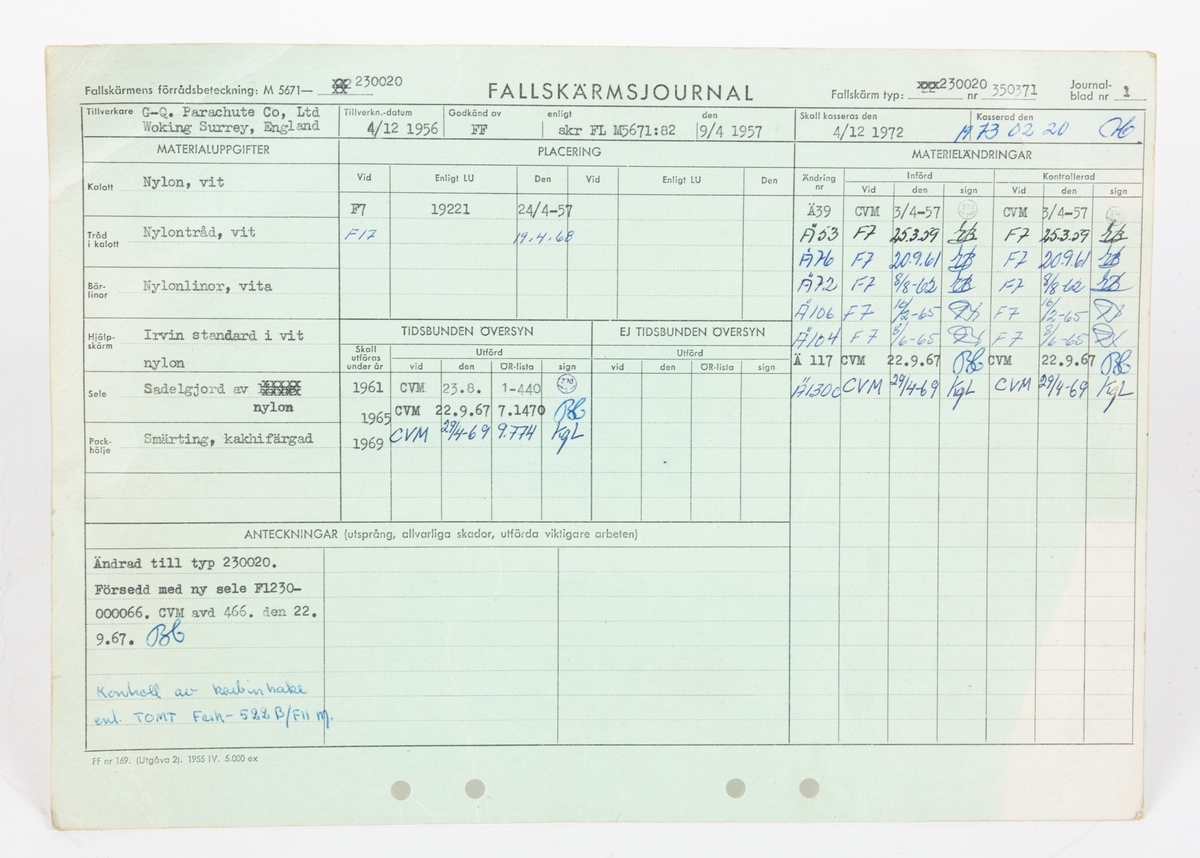 Fallskärmens förrådsbeteckning: M 5671— 230020
FALLSKÄRMSJOURNAL
Fallskärm typ: 230020 nr 350371
Journal-
blad nr 1
Tillverkare G-Q. Parachute Co, Ltd
Woking Surrey, England
Tillverkn.-datum
4/12 1956
Godkänd av
FF
enligt
skr FL M5671:82
den
9/4 1957
Skall kasseras den
4/12 1972
Kasserad den
1973 02 20
MATERIALUPPGIFTER
Kalott Nylon, vit
Tråd
i kalott
Nylontråd, vit
Bär-
linor
Nylonlinor, vita
Hjälp-
skärm
Irvin standard i vit
nylon
Sele Sadelgjord av
nylon
Pack-
hölje
Smärting, kakhifärgad
PLACERING
Vid Enligt LU Den Vid Enligt LU Den
F7 19221 24/4-57
F17 19.4.68
TIDSBUNDEN ÖVERSYN
Skall
utföras
under år
Utförd
vid den ÖR-lista sign
1961 CVM 23.8. 1-440
1965 CVM 22.9.67 7.1470 BC
1969 CVM 29/4-69 9.774 KgL
EJ TIDSBUNDEN ÖVERSYN
Utförd
vid den ÖR-lista sign
MATERIELÄNDRINGAR
Ändring
nr
Införd Kontrollerad
Vid den sign Vid den sign
Ä39 CVM 3/4-57 CVM 3/4-57
Ä53 F7 25.3.59 F7 25.3.59
Ä76 F7 20.9.61 F7 20.9.61
Ä72 F7 8/8-62 F7 8/8-62
Ä106 F7 16/2-65 F7 16/2-65
Ä104 F7 8/6-65 F7 8/6-65
Ä 117 CVM 22.9.67 BC CVM 22.9.67 BC
Ä130C CVM 29/4-69 KgL CVM 29/4-69 KgL
ANTECKNINGAR (utsprång, allvarliga skador, utförda viktigare arbeten)
Ändrad till typ 230020.
Försedd med ny sele F1230-
000066. CVM avd 466. den 22.
9.67. BC
Kontroll av karbinhake
enl. TOMT 522B/F11 M.
FF nr 169. (Utgåva 2). 1955 IV. 5.000 ex